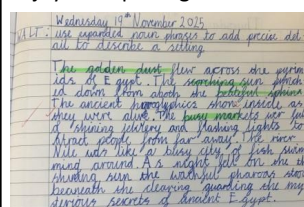 Wednesday 19th November 2025
WALT: use expanded noun phrases to add precise det-
ail to describe a setting.
The golden dust flew across the pyram
ids of Egypt. The scorching sun punch
ed down from above the
The ancient show inside as
they were alive. The busy markets were full
of shining and flashing lights to
attract people from far away. The river
Nile was like a busy city of fish swim
ming around. As night fell on the
sun the pharaos stood
beneath the clearing guarding the mys
terious secrets of ancient Egypt.